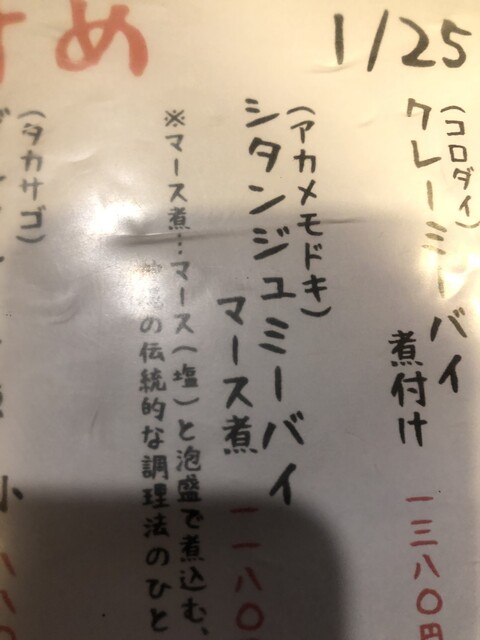 すめ
1/25
(コロダイ)
クレーミーバイ
煮付け
一三八〇円
(アカメモドキ)
シタンジュミーバイ
マース煮
一一八〇
※マース煮…マース(塩)と泡盛で煮込む、
の伝統的な調理法のひと
(タカサゴ)
小
八八〇